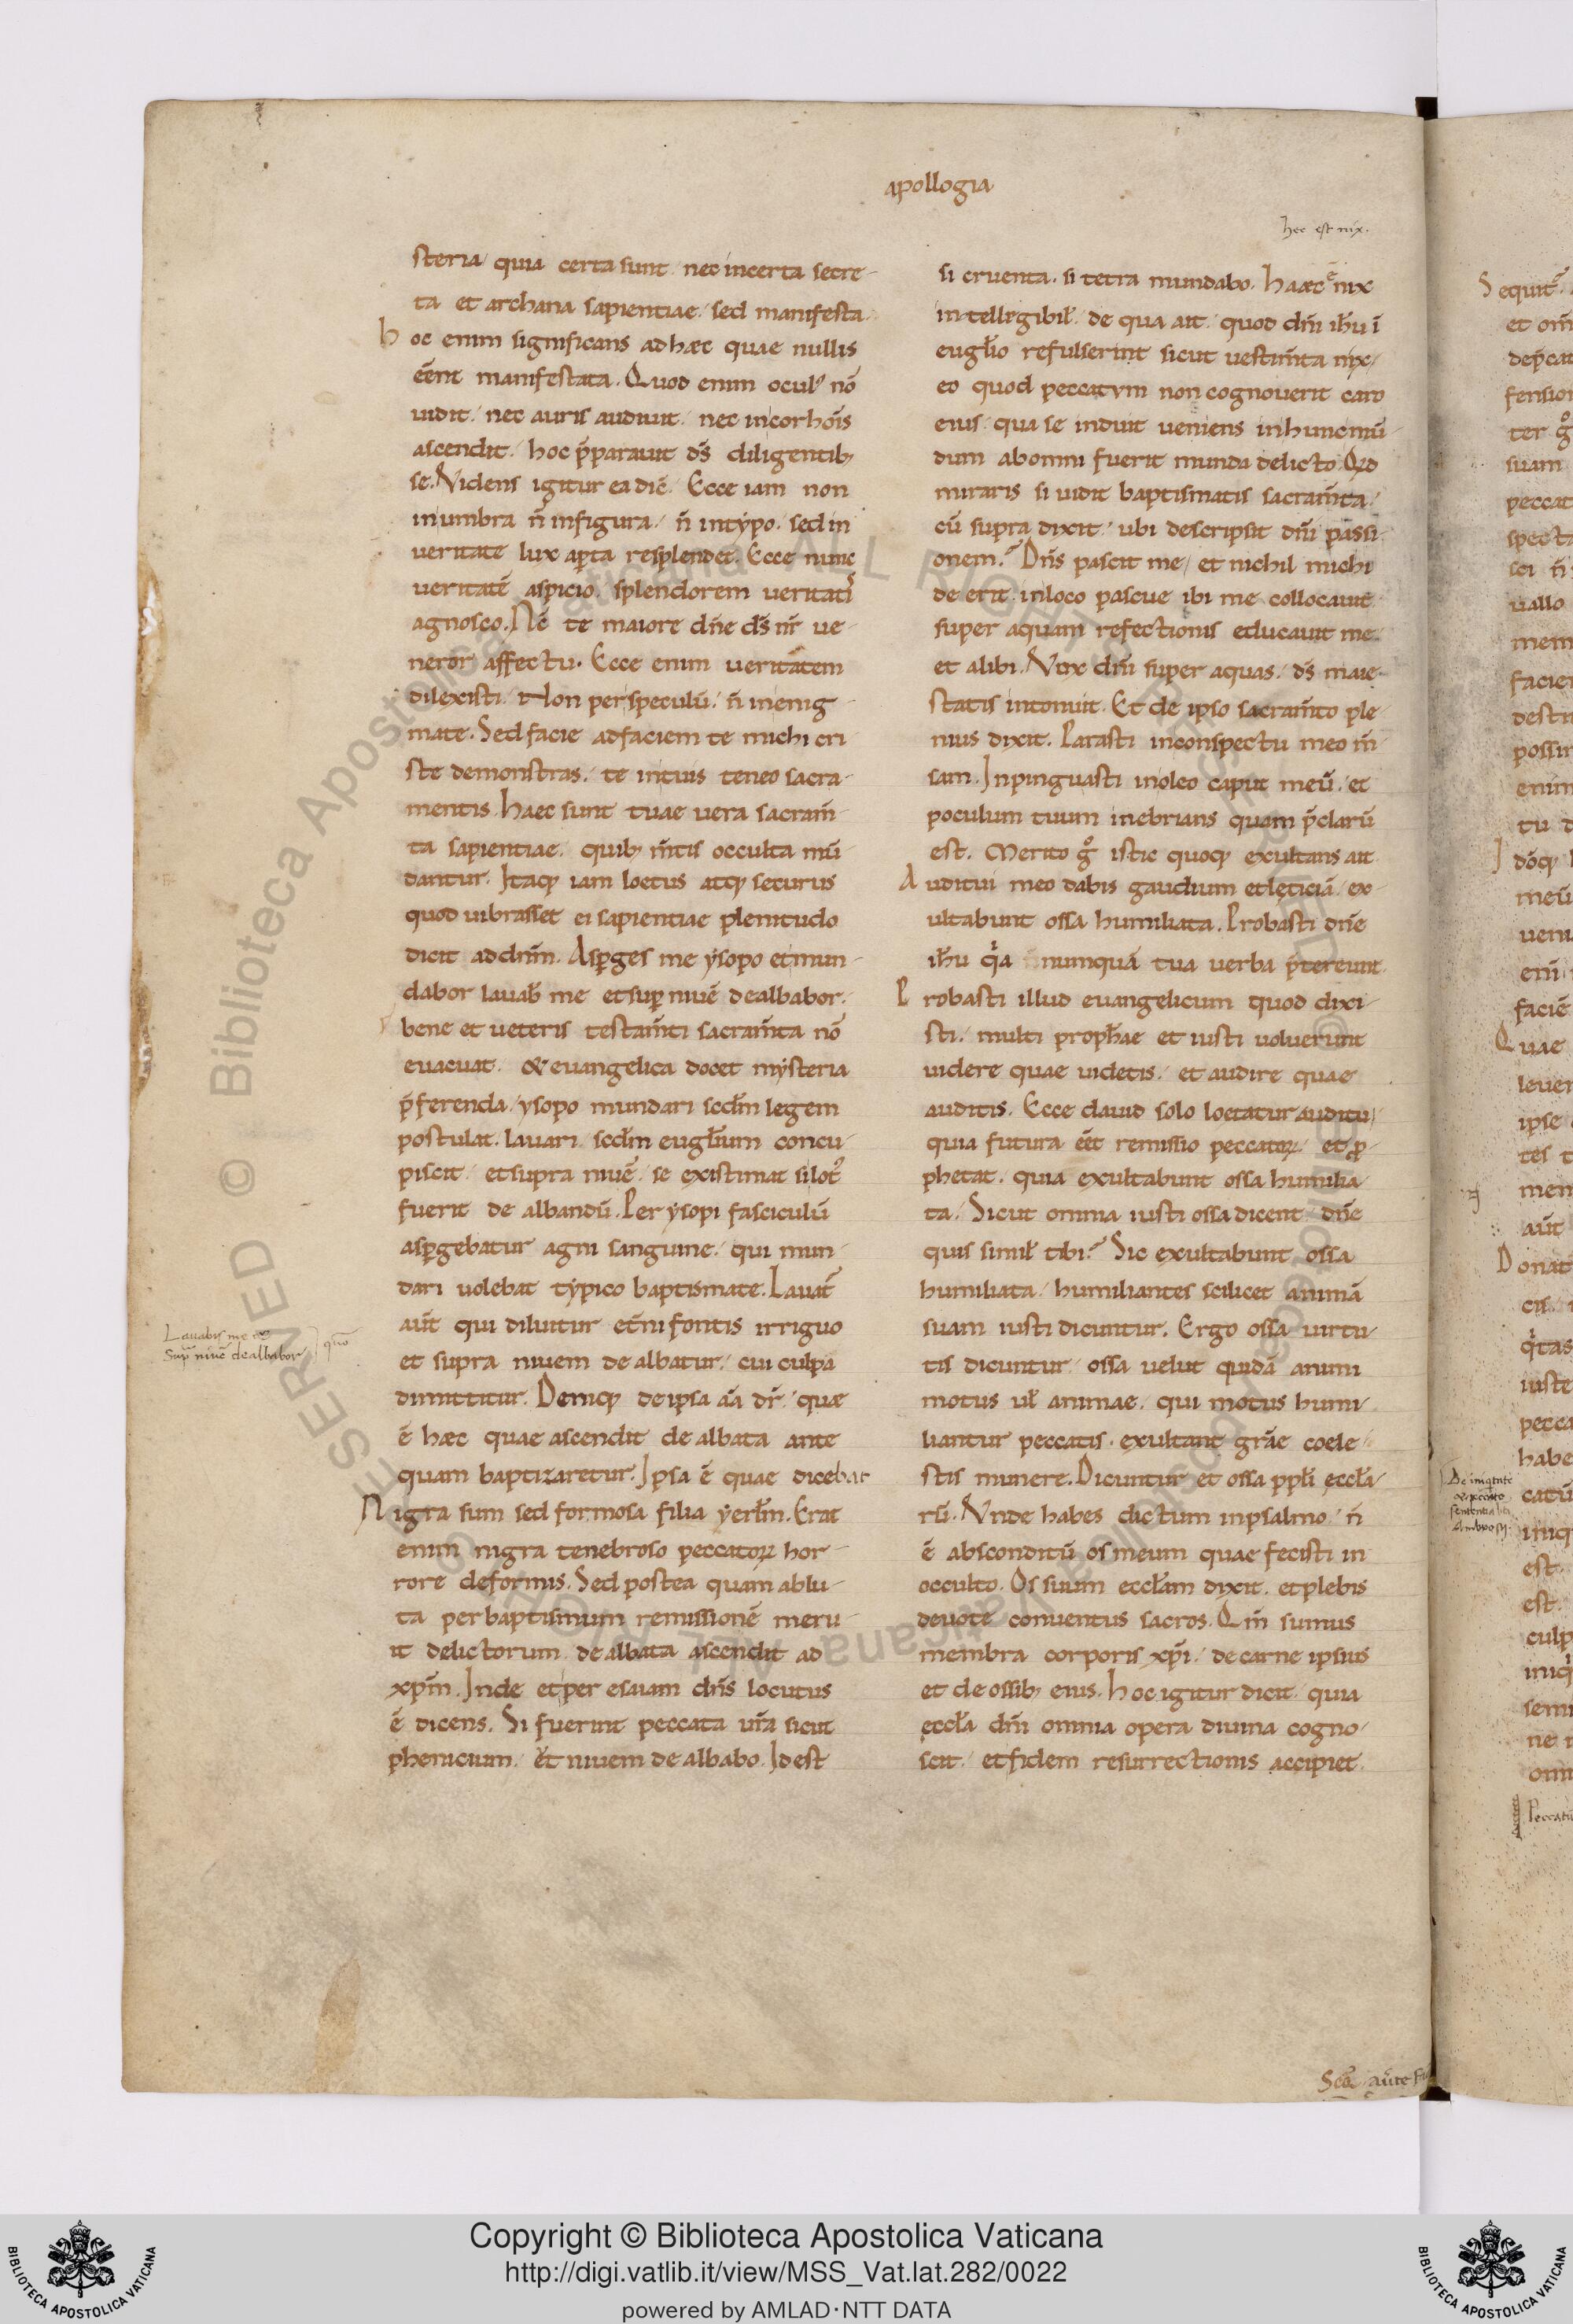 apollogia
hec est nix.
steria quia certa sunt nec incerta secre-
ta et archana sapientiae, sed manifesta.
hoc enim significans ad hæc quae nullis
eēnt manifestata. Quod enim ocul' nō
uidit, nec auris audiuit, nec incorhōis
ascendit, hoc p̄parauit d̄s diligentib;
se. Videns igitur ea dic̄. Ecce iam non
inumbra n̄ infigura, n̄ intypo, sed in
ueritate lux aꝑta resplendet. Ecce nunc
ueritatē aspicio, splendorem ueritatis
agnosco. Nc̄ te maiore dn̄e d̄s nr̄ ue-
neror affectu. Ecce enim ueritatem
dilexisti, Non per speculū, n̄ inenig-
mate. Sed facie adfaciem te michi cri
ste demonstras, te intuis teneo sacra-
mentis. haec sunt tuae uera sacram̄-
ta sapientiae, quib; m̄tis occulta mū-
dantur. Itaq; iam loetus atq; securus
quod uibrasset ei sapientiae plenitudo
dicit addn̄m. Asꝑges me ysopo etmun-
dabor lauab̄ me etsuꝑ niuē dealbabor.
bene et ueteris testam̄ti sacram̄ta nō
euacuat, & euangelica docet mysteria
p̄ferenda, ysopo mundari scd̄m legem
postulat, lauari scd̄m eugl̄ium concu-
piscit, etsupra niuē se existimat silot'
fuerit de albandū. Per ysopi fasciculū
asꝑgebatur agni sanguine, qui mun-
dari uolebat typico baptismate. Lauat̄
aūt qui diluitur et̄ni fontis irriguo
et supra niuem de albatur, cui culpa
dimittitur. Deniq; de ipsa aīa dr̄, quæ
ē hæc quae ascendit de albata ante
quam baptizaretur. Ipsa ē quae dicebat
Nigra sum sed formosa filia yerl̄m. Erat
enim nigra tenebroso peccatoꝝ hor-
rore deformis. Sed postea quam ablu-
ta per baptismum remissionē meru-
it delictorum de albata ascendit ad
xp̄m. Inde etper esaiam dn̄s locutus
ē dicens. Si fuerint peccata ur̄a sicut
phenicium, ut niuem de albabo. Idest
Lauabis me et
Sup niuē dealbabor quō
si cruenta, si tetra mundabo. haæc ē nix
intelligibil̄ de qua ait, quod dn̄i ih̄u ī
eugl̄io refulserint sicut uestim̄ta nix,
eo quod peccatum non cognouerit caro
eius, qua se induit ueniens inhuncmū-
dum abomni fuerit munda delicto. Qd
miraris si uidit baptismatis sacram̄ta,
cū supra dixit, ubi descripsit dn̄i passi-
onem? Dn̄s pascit me, et nichil michi
de erit, inloco pascue ibi me collocauit
super aquam refectionis educauit me.
et alibi. Vox dn̄i super aquas, d̄s maie-
statis intonuit. Et de ipso sacram̄to ple
nius dixit. Parasti inconspectu meo m̄-
sam. Inpinguasti inoleo caput meū, et
poculum tuum inebrians quam p̄clarū
est. Merito gͦ istic quoq; exultans ait
Auditui meo dabis gaudium etlęticiā, ex-
ultabunt ossa humiliata. Probasti dn̄e
ih̄u q'a numquā tua uerba p̄tereunt.
Probasti illud euangelicum quod dixi-
sti, multi proph̄ae et iusti uoluerunt
uidere quae uidetis, et audire quae
auditis. Ecce dauid solo loetatur auditu,
quia futura eēt remissio peccatoꝝ, et ꝓ-
phetat, quia exultabunt ossa humilia-
ta. Sicut omnia iusti ossa dicent, dn̄e
quis simil̄ tibi? Sic exultabunt ossa
humiliata, humiliantes scilicet animā
suam iusti dicuntur. Ergo ossa uirtu-
tis dicuntur, ossa uelut quidā animi
motus ul̄ animae, qui motus humi-
liantur peccatis, exultant grāe coele-
stis munere. Dicuntur et ossa ppl̄i eccl̄a-
rū. Vnde habes dictum inpsalmo, n̄
ē absconditū os meum quae fecisti in
occulto. Os suum eccl̄am dixit, etplebis
deuote conuentus sacros. Qm̄ sumus
membra corporis xp̄i, de carne ipsius
et de ossib; eius. hoc igitur dicit, quia
eccl̄a dn̄i omnia opera diuina cogno-
scit, etfidem resurrectionis accipiet.
Copyright © Biblioteca Apostolica Vaticana
http://digi.vatlib.it/view/MSS_Vat.lat.282/0022
powered by AMLAD·NTT DATA